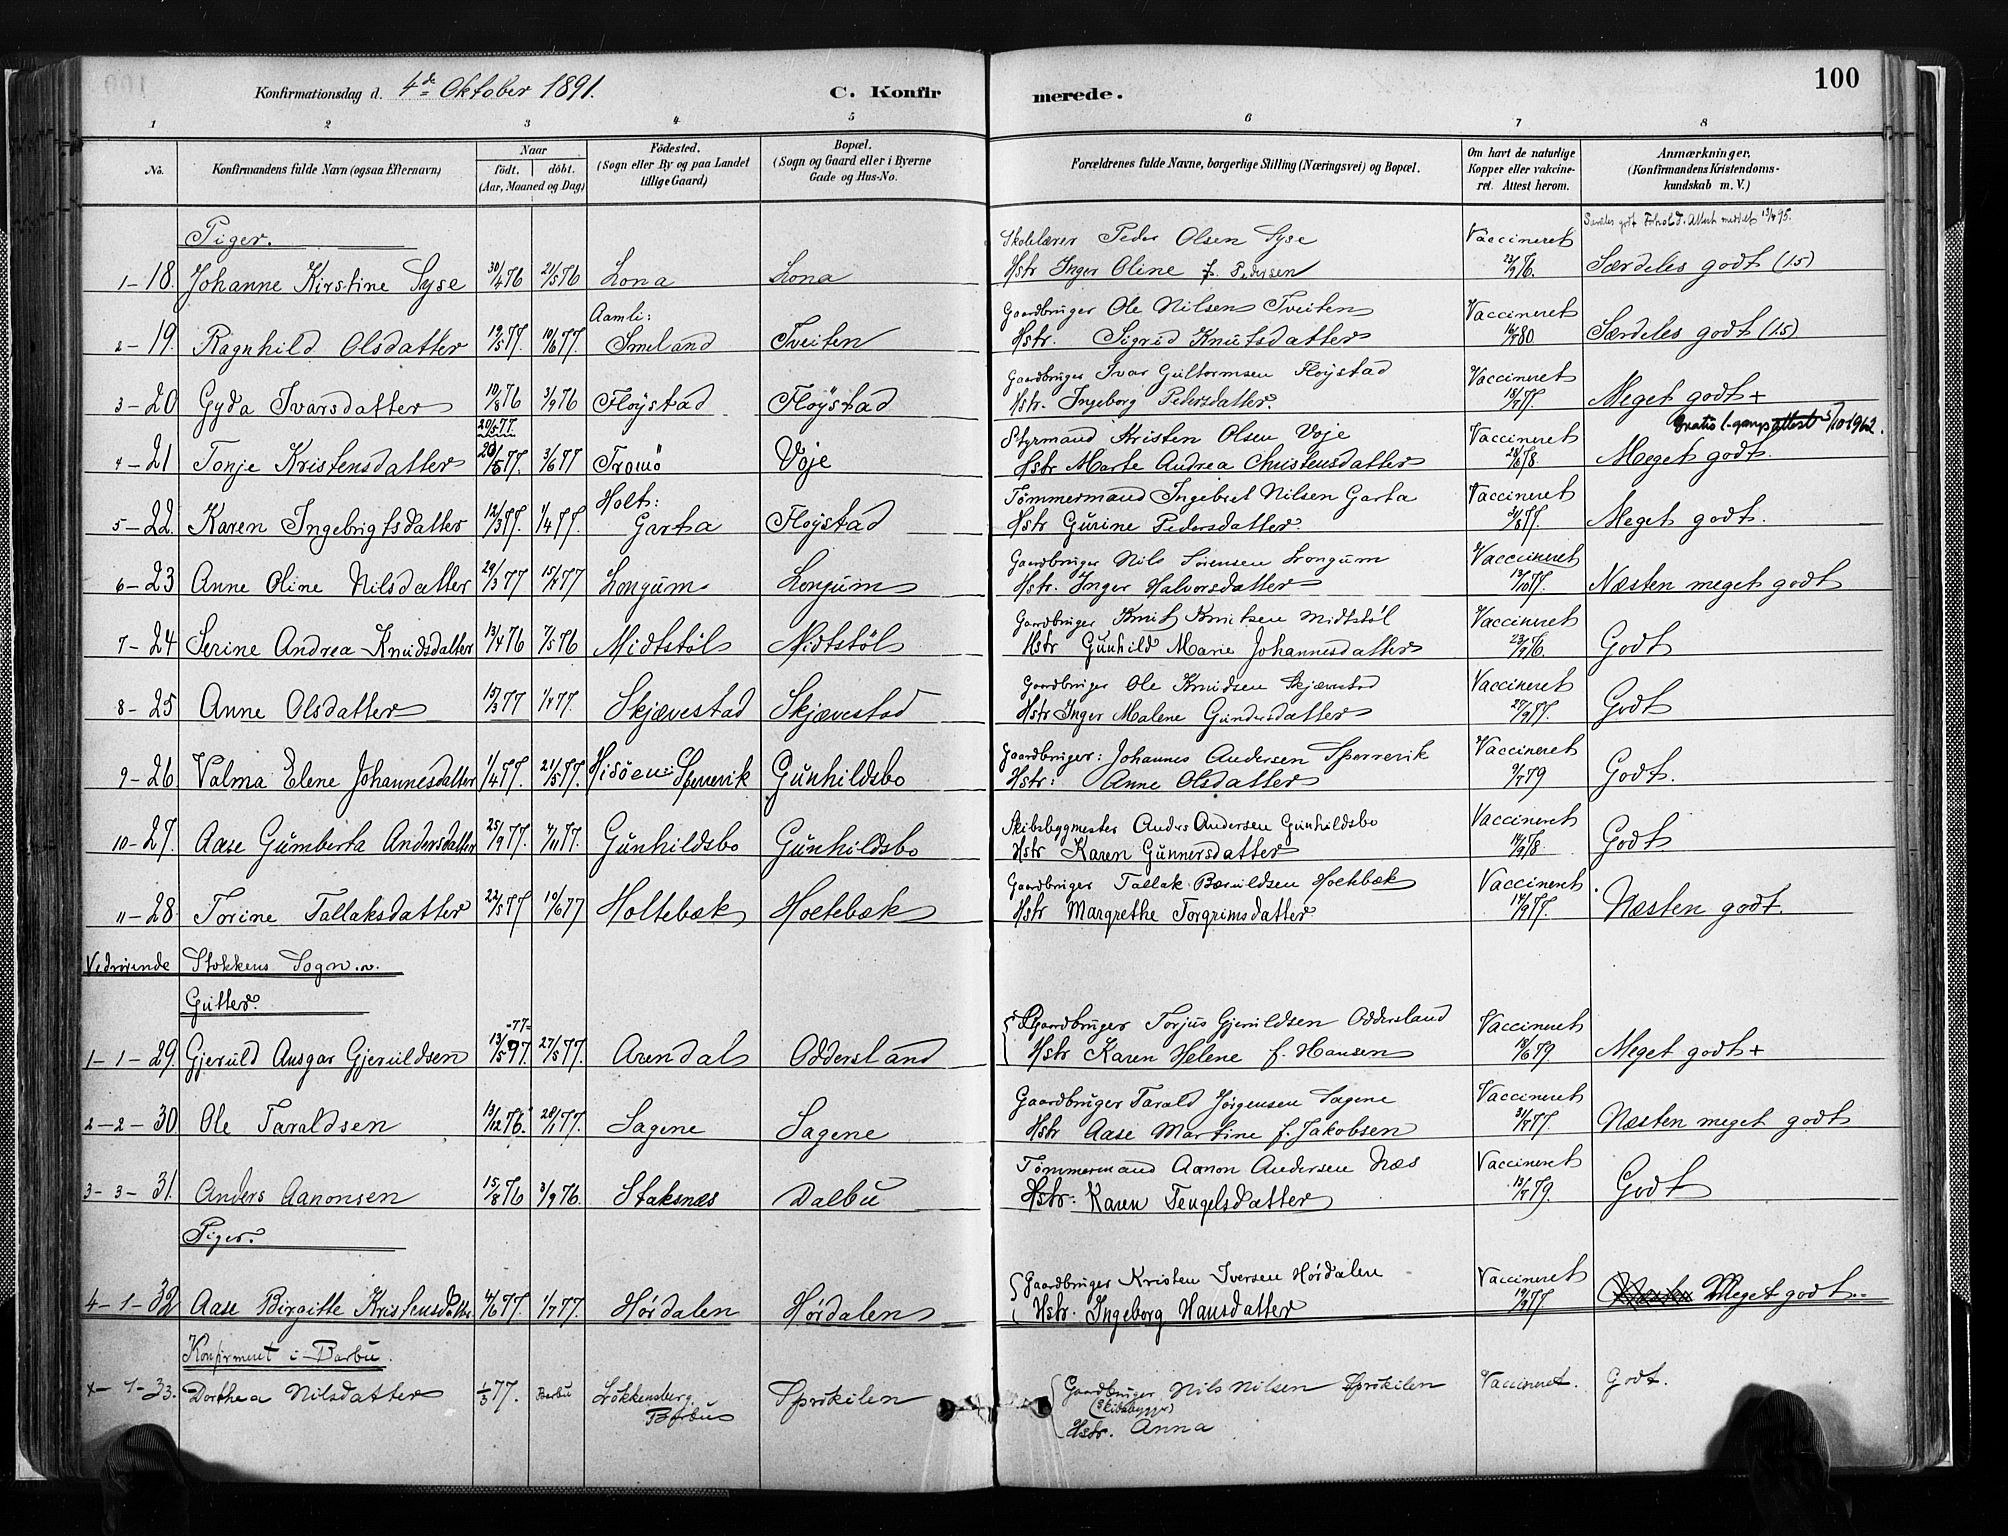 Konfirmationsdag d. 4de Oktober 1891.
C. Konfirmerede.
100
1 2 3 4 5 6 7 8
No.
Konfirmandens fulde Navn (ogsaa Efternavn)
Naar
födt. döbt.
(Aar, Maaned og Dag)
Födested.
(Sogn eller By og paa Landet
tillige Gaard)
Bopæl.
(Sogn og Gaard eller i Byerne
Gade og Hus-No.
Forældrenes fulde Navne, borgerlige Stilling (Næringsvei) og Bopæl.
Om havt de naturlige
Kopper eller vakcine-
ret. Attest herom.
Anmærkninger.
(Konfirmandens Kristendoms-
kundskab m. V.)
Piger.
Skolelærer Peder Olsen Syse Vaccineret Særdeles godt Forhold. Attest meddelt 95.
1-18. Johanne Kirstine Syse 30/4 76 21/5 76 Lona Lona Hstr Inger Oline f. Pedersen 22/9 76. Særdeles godt (1.5)
Aamli: Gaardbruger Ole Nilsen Tveiten Vaccineret
2-19. Ragnhild Olsdatter 19/5 77. 10/6 77. Smeland Tveiten Hstr. Sigrid Knutsdatter 80 Særdeles godt (1.5)
Gaardbruger Ivar Guttormsen Flöystad Vaccineret
3-20 Gyda Ivarsdatter 10/8 76 3/9 76 Flöystad Flöystad Hstr. Ingeborg Pedersdatter. 77. Meget godt +
20/5 77. Styrmand Kristen Olsen Voje Vaccineret 5/10 1962.
4-21 Tonje Kristensdatter 20/5 77. 3/6 77 Tromö Voje Hstr Marte Andrea Christensdatter 78. Meget godt.
Holt: Tømmermand Ingebret Nilsen Garta Vaccineret
5-22. Karen Ingebrigtsdatter 12/3 77. 1/4 77. Garta Flöystad Hstr Gurine Pedersdatter. 77. Meget godt.
Gaardbruger Nils Sørensen Longum Vaccineret
6-23 Anne Oline Nilsdatter 29/3 77 15/4 77 Longum Longum Hstr. Inger Halvorsdatter 77. Næsten meget godt
Gaardbruger Knut Knutsen Midtstøl Vaccineret
7-24 Serine Andrea Knudsdatter 13/4 76 7/5 76 Midtstöl Midtstöl Hstr Gunhild Marie Johannesdatter 76. Godt
Gaardbruger Ole Knudsen Skjævestad Vaccineret
8-25 Anne Olsdatter 15/3 77 1/4 77. Skjævestad Skjævestad Hstr Inger Malene Gundersdatter 27/9 77. Godt
Gaardbruger: Johannes Andersen Spærrevik Vaccineret
9-26 Valma Elene Johannesdatter 1/4 77. 21/5 77. Hisöen: Spærrevik Gunhildsbo Hstr: Anne Olsdatter 79 Godt.
Skibsbygmester Anders Andersen Gunhildsbo Vaccineret
10-27. Aase Gumberta Andersdatter 25/9 77. 4/11 77. Gunhildsbo Gunhildsbo Hstr Karen Gunnersdatter 78. Godt.
Gaardbruger Tallak Bæruldsen Holtebæk Vaccineret
11-28 Torine Tallaksdatter 22/5 77 10/6 77 Holtebæk Holtebæk Hstr Margrethe Torgrimsdatter 14/9 77. Næsten godt.
Vedrørende Stokkens Sogn.
Gutter.
-77- Gaardbruger Torjus Gjeruldsen Oddersland Vaccineret
1-1-29. Gjeruld Ansgar Gjeruldsen 13/5 97. 27/5 77. Arendal Oddersland Hstr Karen Helene f. Hansen 18/6 79. Meget godt +
Gaardbruger Tarald Jørgensen Sagene Vaccineret
2-2-30 Ole Taraldsen 13/12 76. 28/1 77. Sagene Sagene Hstr Aase Martine f. Jakobsen 77. Næsten meget godt
Tömmermand Aanon Andersen Næs Vaccineret
3-3-31. Anders Aanonsen 15/8 76 3/9 76. Staksnæs Dalbu Hstr: Karen Tengelsdatter 79. Godt
Piger.
Gaardbruger Kristen Iversen Hørdalen Vaccineret
4-1-32 Aase Birgitte Kristensdatter 4/6 77. 1/7 77. Hørdalen Hørdalen Hstr. Ingeborg Hansdatter 19/9 77. Meget godt.
Konfirmeret i Barbu.
1-33. Dorthea Nilsdatter 1/3 77. Barbu Løkkensberg Barbu Sprøkilen Gaardbruger Nils Nilsen Sprøkilen Vaccineret. Godt.
(Skibsbygger)
Hstr. Anna